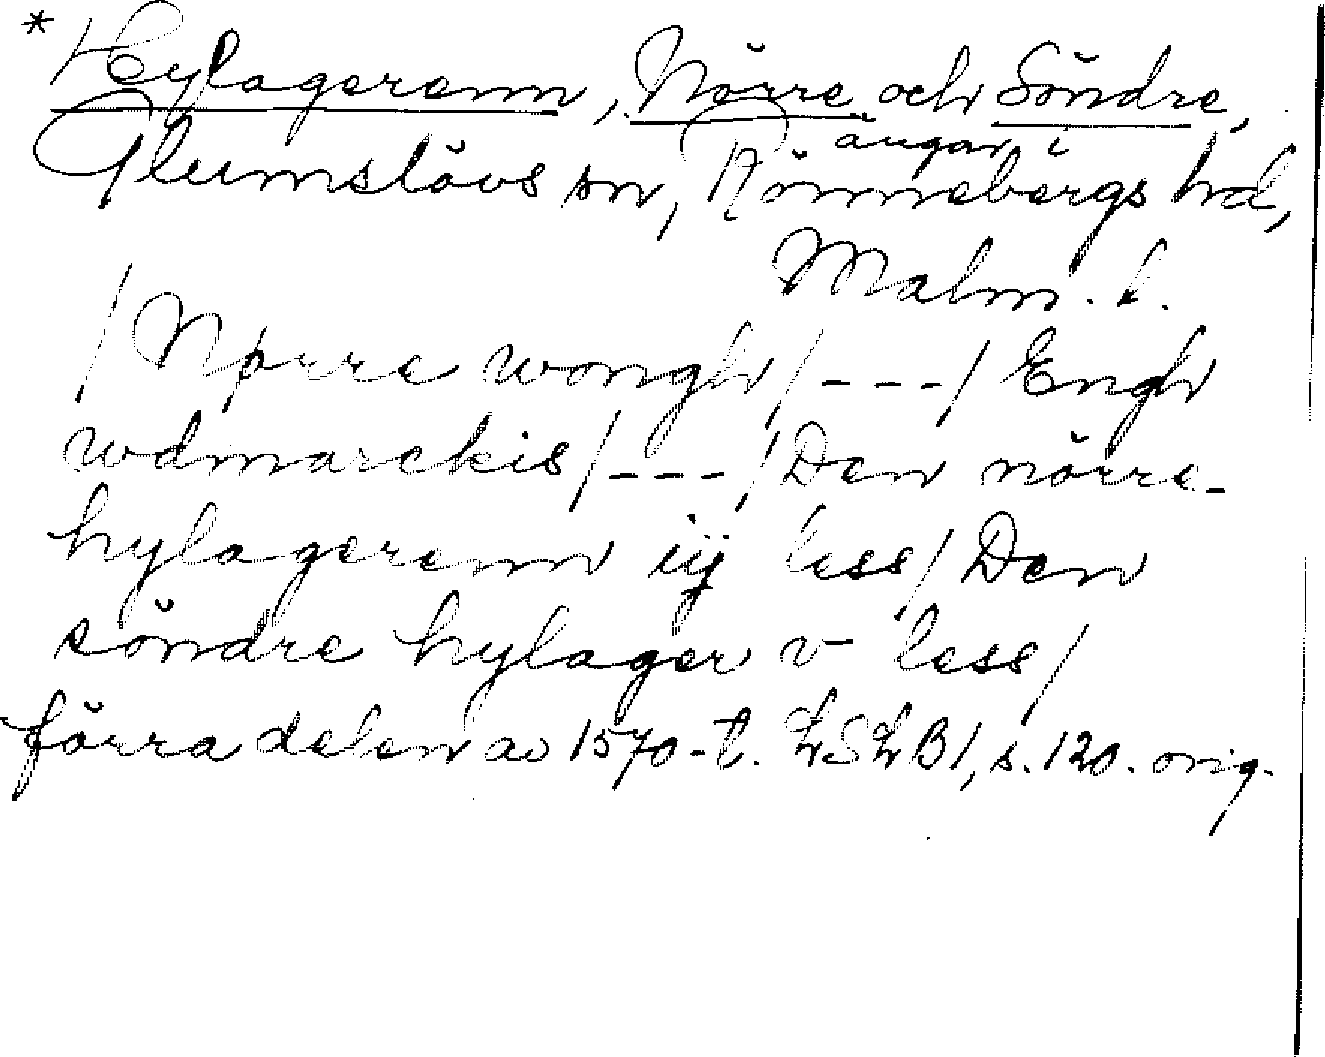 * Hylagerenn, Nörre och Söndre,
ängar i
Glumslövs sn, Rönnebergs hd,
Malm. l.
/ Nørre wongh / - - - / Engh
wdmarckis / - - - / Den nörre-
hylagerenn iij less / Den
söndre hylager v less /
förra delen av 1570-t. LSLB1, s. 120. orig.